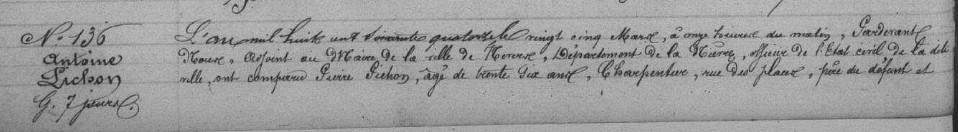 N° 136
Antoine
Pichon
G. 7 jours.
L'an mil huit cent soixante quatorze le vingt cinq Mars, à onze heures du matin, Pardevant
Nous, Adjoint au Maire de la ville de Nevers, Département de la Nièvre, officier de l'Etat civil de la dite
ville, ont comparu Pierre Pichon, âgé de trente six ans, Charpentier, rue des places, père du défunt et